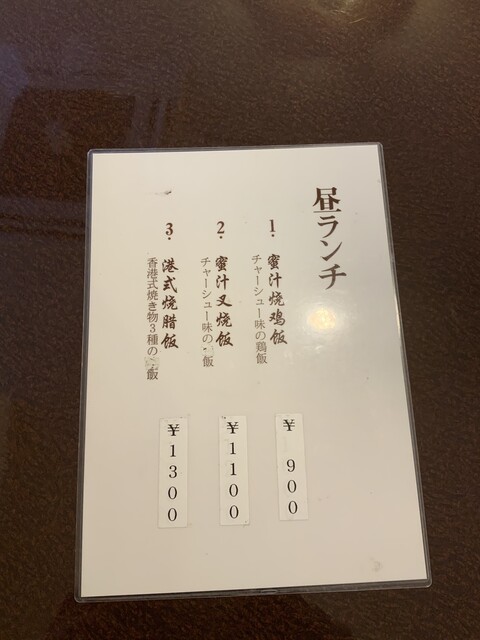 昼ランチ
1. 蜜汁烧鸡饭
チャーシュー味の鶏飯
¥ 900
2. 蜜汁叉烧饭
チャーシュー味の 飯
¥1100
3. 港式烧腊饭
香港式焼き物3種の 飯
¥1300